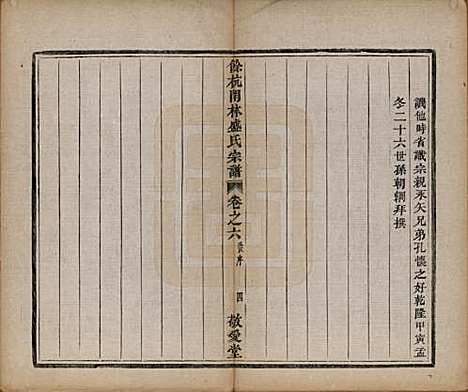 謂他時省識宗親永矢兄弟孔懷之好乾隆甲寅孟
冬二十六世孫朝朝拜撰
餘杭閒林盛氏宗譜
卷之六
四
敬愛堂